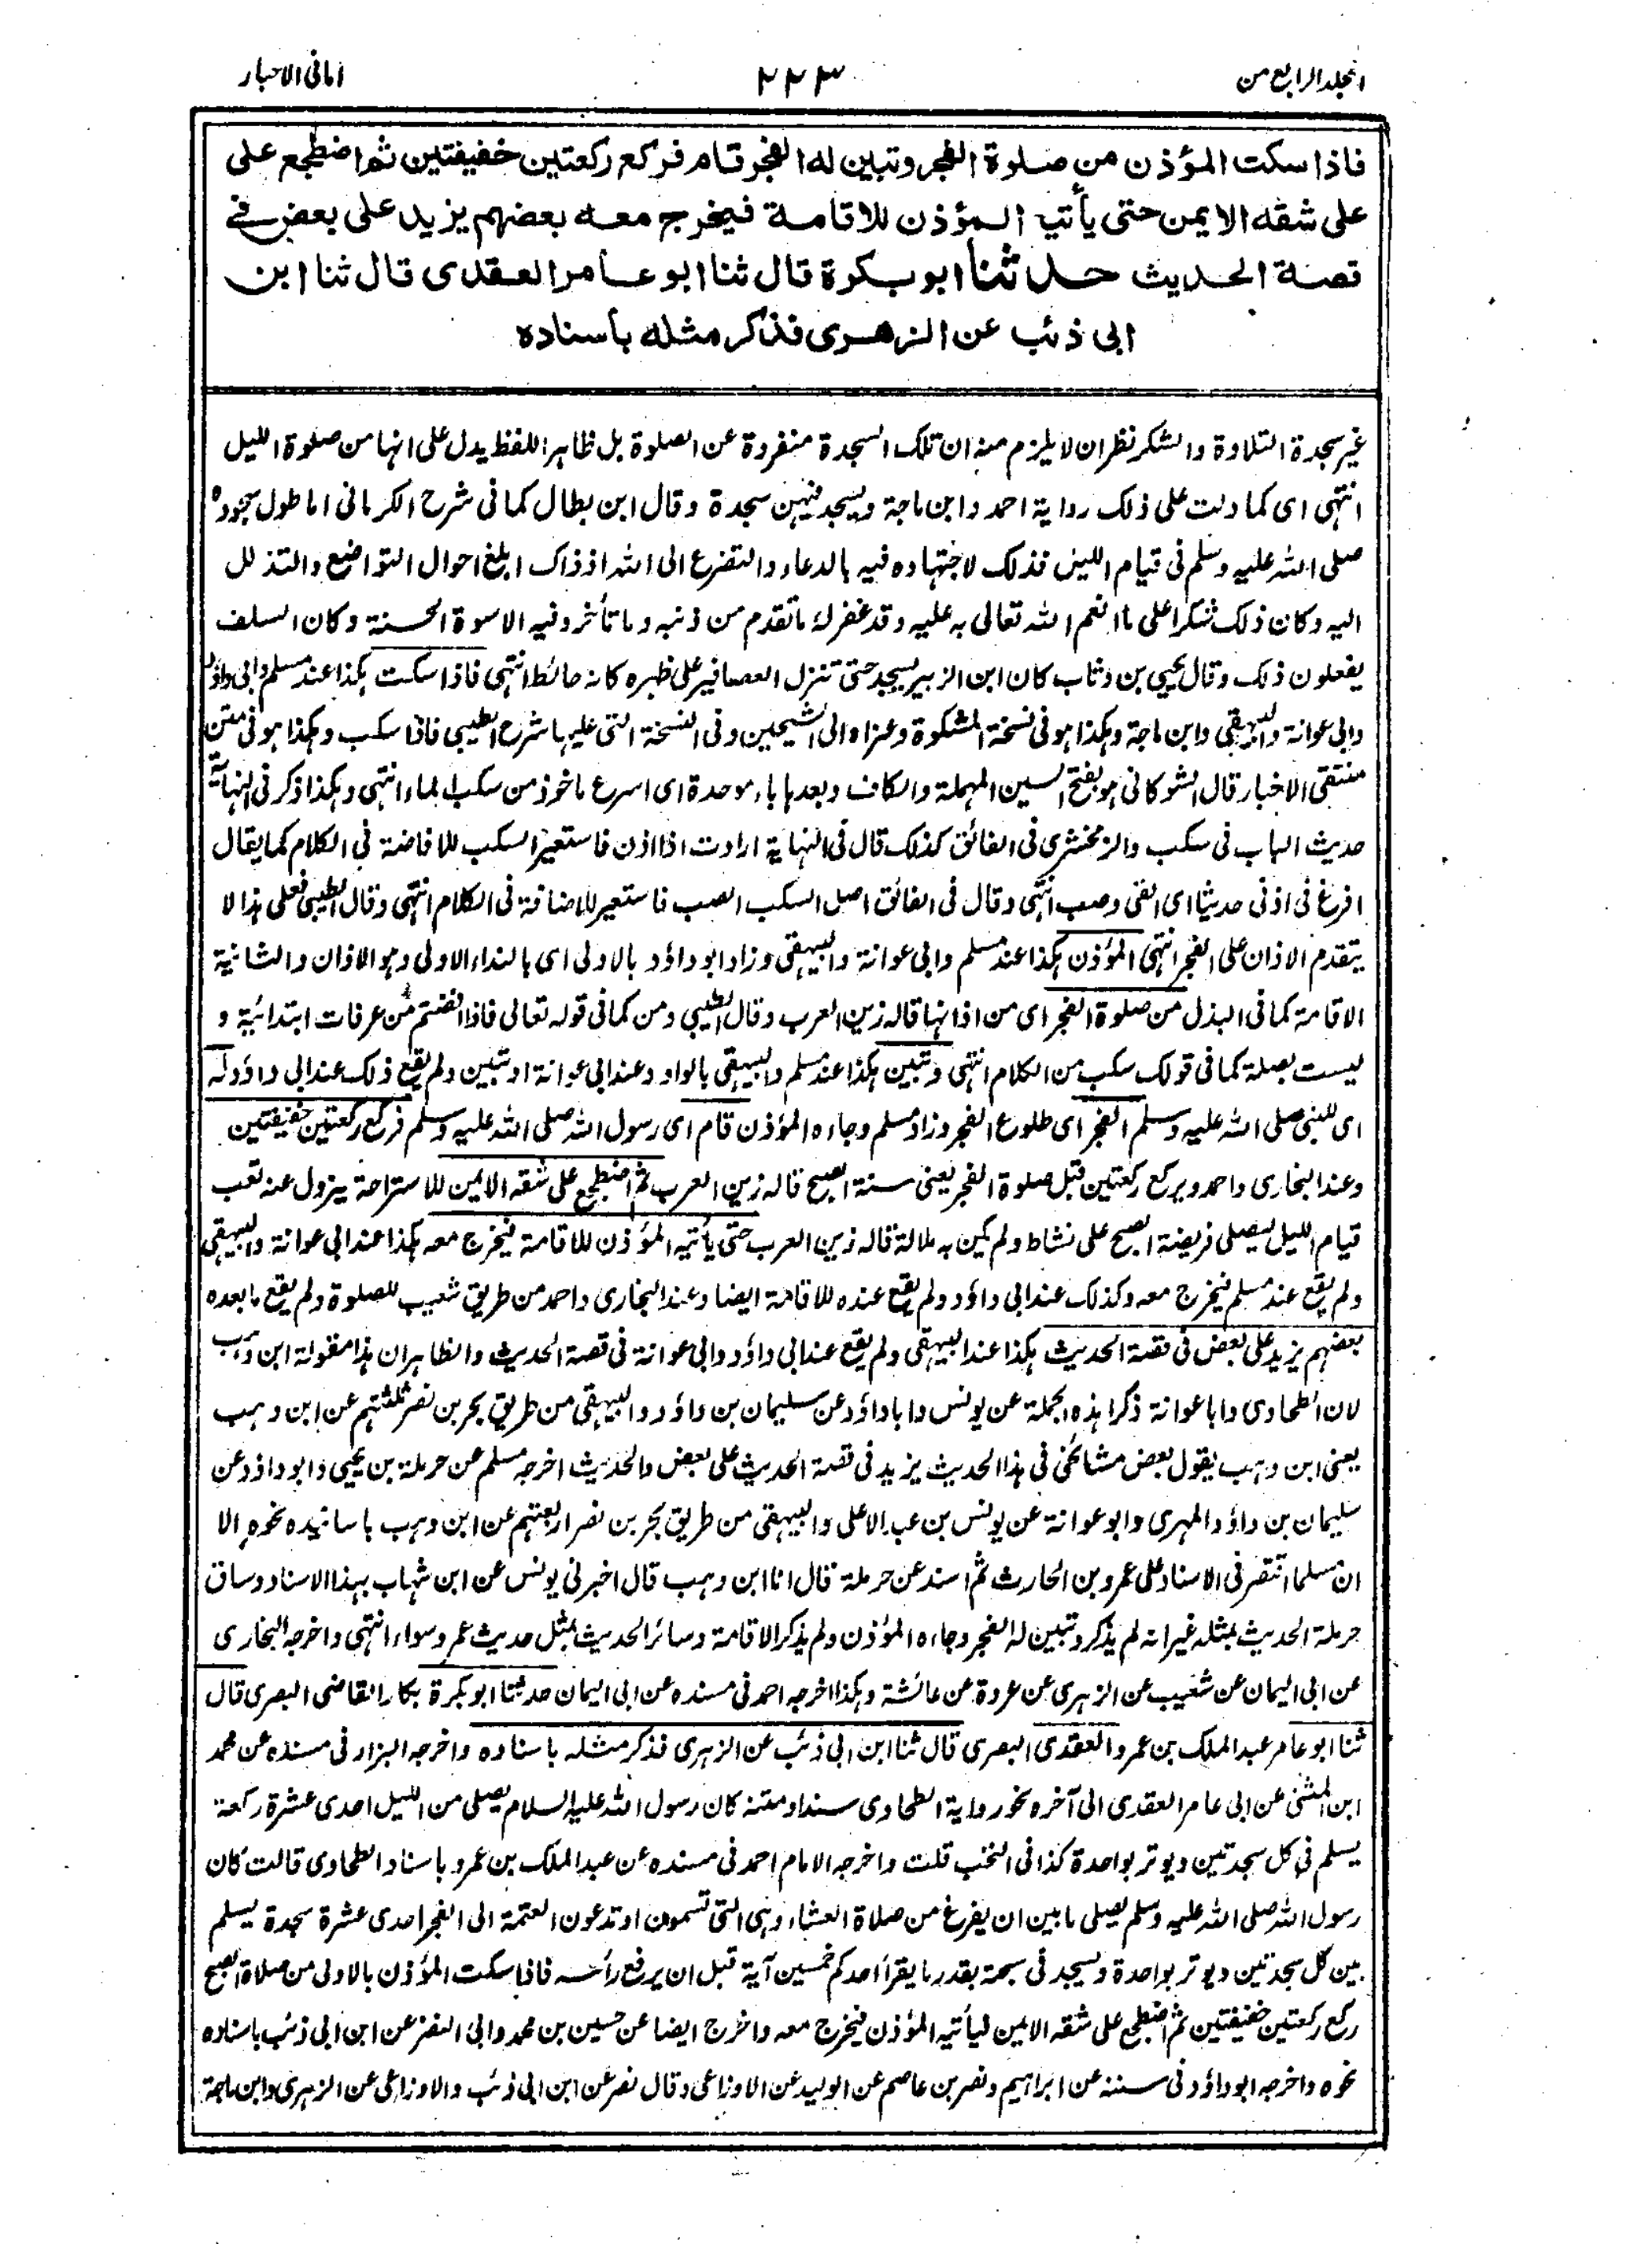 المجلد الرابع من
۲۲۳
امانی الاحبار
فاذا سكت المؤذن من صلوة الفجر وتبين له الفجر قام فركع ركعتين خفيفتين ثم اضطجع على
على شقه الايمن حتى يأتيه المؤذن للاقامة فيخرج معه بعضهم يزيد على بعض في
قصة الحديث حدثنا ابو بكرة قال ثنا ابو عامر العقدى قال ثنا ابن
ابى ذئب عن الزهرى فذكر مثله بأسناده
غير سجدة التلاوة والشكر نظر ان لا يلزم منه ان تلك السجدة منفردة عن الصلوة بل ظاہر اللفظ يدل على انها من صلوة الليل
انتہی ای كما دلت على ذلک رواية احمد وابن ماجة ويسجد فيهن سجدة وقال ابن بطال كما فى شرح الكرمانى اما طول سجوده
صلى الله عليه وسلم فى قيام الليل فذلک لاجتهاده فيه بالدعاء والتضرع الى الله اذ ذاک ابلغ احوال التواضع والتذلل
اليه وكان ذلک شكرا على ما انعم الله تعالى به عليه وقد غفر له ما تقدم من ذنبه وما تأخر وفيه الاسوة الحسنة وكان السلف
يفعلون ذلک وقال يحيى بن وثاب كان ابن الزبير يسجد حتى تنزل العصافير على ظهره كانه حائط انتہی فاذا سكت ہكذا عند مسلم وابى داؤد
وابى عوانة والبيہقى وابن ماجة وہكذا ہو فى نسخة المشكوة وعزاه الى الشيخين وفى النسخة التى عليہا شرح الطيبى فاذا سكب وہكذا ہو فى متن
منتقى الاخبار قال الشوكانى ہو بفتح السين المهملة والكاف وبعدها باء موحدة اى اسرع ماخوذ من سكب الماء انتہی وہكذا ذكر فى النهاية
حديث الباب فى سكب والزمخشرى فى الفائق كذلک قال فى النهاية ارادت اذا اذن فاستعير السكب للافاضة فى الكلام كما يقال
افرغ فى اذنى حديثا اى القى وصب انتہی وقال فى الفائق اصل السكب الصب فاستعير للاضافة فى الكلام انتہی وقال الطيبى فعلى ہذا لا
يتقدم الاذان على الفجر انتہی المؤذن ہكذا عند مسلم وابى عوانة والبيہقى وزاد ابو داؤد بالاولى اى بالنداء الاولى وہو الاذان والثانية
الاقامة كما فى البذل من صلوة الفجر اى من اذانها قاله زين العرب وقال الطيبى ومن كما فى قوله تعالى فاذا افضتم من عرفات ابتدائية و
ليست بصلة كما فى قولک سكب من الكلام انتہی وتبين ہكذا عند مسلم والبيہقى بالواو وعند ابى عوانة او تبين ولم يقع ذلک عند ابى داؤد له
اى للنبى صلى الله عليه وسلم الفجر اى طلوع الفجر وزاد مسلم وجاءه المؤذن قام اى رسول الله صلى الله عليه وسلم فركع ركعتين خفيفتين
وعند البخارى واحمد ويركع ركعتين قبل صلوة الفجر يعنى سنة الصبح قاله زين العرب ثم اضطجع على شقه الايمن للاستراحة يزول عنه تعب
قيام الليل ليصلى فريضة الصبح على نشاط ولم يكن به ملالة قاله زين العرب حتى يأتيه المؤذن للاقامة فيخرج معه ہكذا عند ابى عوانة والبيہقى
ولم يقع عند مسلم فيخرج معه وكذلک عند ابى داؤد ولم يقع عنده للاقامة ايضا وعند البخارى واحمد من طريق شعيب للصلوة ولم يقع ما بعده
بعضہم يزيد على بعض فى قصة الحديث ہكذا عند البيہقى ولم يقع عند ابى داؤد وابى عوانة فى قصة الحديث والظاہر ان ہذا مقولة ابن وہب
لان الطحاوى وابا عوانة ذكرا ہذه الجملة عن يونس وابا داؤد عن سليمان بن داؤد والبيہقى من طريق بحر بن نصر ثلثتہم عن ابن وہب
يعنى ابن وہب يقول بعض مشائخى فى ہذا الحديث يزيد فى قصة الحديث على بعض والحديث اخرجه مسلم عن حرملة بن يحيى وابو داؤد عن
سليمان بن داؤد المهرى وابو عوانة عن يونس بن عبد الاعلى والبيہقى من طريق بحر بن نصر اربعتہم عن ابن وہب باسانيده نحوه الا
ان مسلما اقتصر فى الاسناد على عمرو بن الحارث ثم اسند عن حرملة قال انا ابن وہب قال اخبرنى يونس عن ابن شہاب بہذا الاسناد وساق
حرملة الحديث بمثله غير انه لم يذكر وتبين له الفجر وجاءه المؤذن ولم يذكر الاقامة وسائر الحديث بمثل حديث عمرو سواء انتہی واخرجه البخارى
عن ابى اليمان عن شعيب عن الزہرى عن عروة عن عائشة وہكذا اخرجه احمد فى مسنده عن ابى اليمان حدثنا ابو بكرة بكار القاضى البصرى قال
ثنا ابو عامر عبد الملک بن عمرو العقدى البصرى قال ثنا ابن ابى ذئب عن الزہرى فذكر مثله باسناده واخرجه البزار فى مسنده عن محمد
ابن المثنى عن ابى عامر العقدى الى آخره نحو رواية الطحاوى سندا ومتنه كان رسول الله عليه السلام يصلى من الليل احدى عشرة ركعة
يسلم فى كل سجدتين ويوتر بواحدة كذا فى النخب قلت واخرجه الامام احمد فى مسنده عن عبد الملک بن عمرو باسناد الطحاوى قالت كان
رسول الله صلى الله عليه وسلم يصلى ما بين ان يفرغ من صلاة العشاء وہى التى تسمون او تدعون العتمة الى الفجر احدى عشرة سجدة يسلم
بين كل سجدتين ويوتر بواحدة ويسجد فى سبحة بقدر ما يقرأ احدكم خمسين آية قبل ان يرفع رأسه فاذا سكت المؤذن بالاولى من صلاة الصبح
ركع ركعتين خفيفتين ثم اضطجع على شقه الايمن ليأتيه المؤذن فيخرج معه واخرج ايضا عن حسين بن محمد وابى النضر عن ابن ابى ذئب باسناده
نحوه واخرجه ابو داؤد فى سننه عن ابراہيم ونصر بن عاصم عن الوليد عن الاوزاعى وقال نصر عن ابن ابى ذئب والاوزاعى عن الزہرى وابن ماجة